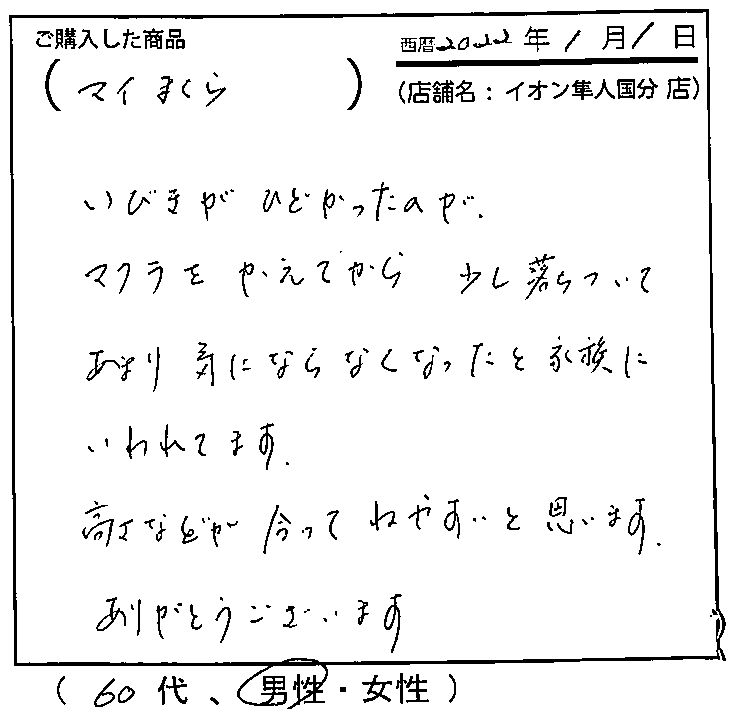 ご購入した商品
西暦2022年1月1日
(マイまくら)
(店舗名：イオン隼人国分店)
いびきがひどかったのが、
マクラをかえてから 少し落ちついて
あまり気にならなくなったと家族に
いわれてます。
高さなどが合ってねやすいと思います。
ありがとうございます
(60代、男性・女性)